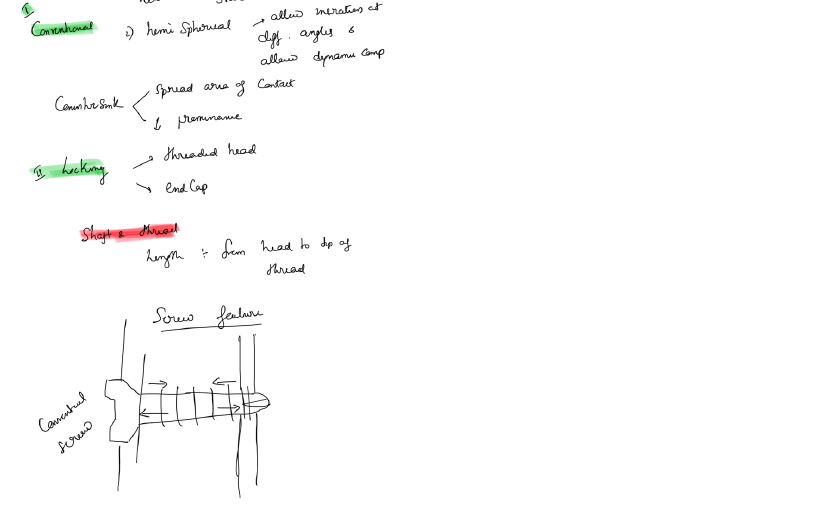 I
Conventional
2) hemi Spherical → allow insertion at
diff. angles &
allow dynamic Comp
CounterSink
Spread area of Contact
↓ prominance
II Locking
threaded head
end Cap
Shaft & thread
Length ÷ from head to tip of
thread
Screw feature
Conventional
Screw